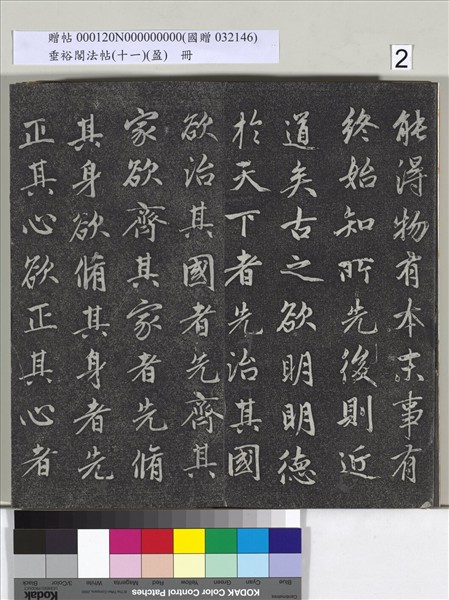 贈帖 000120N000000000(國贈 032146)
垂裕閣法帖(十一)(盈) 冊
2
能得物有本末事有
終始知所先後則近
道矣古之欲明明德
於天下者先治其國
欲治其國者先齊其
家欲齊其家者先脩
其身欲脩其身者先
正其心欲正其心者
Blue Cyan Green Yellow Red Magenta White 3/Color Black
KODAK Color Control Patches
Kodak